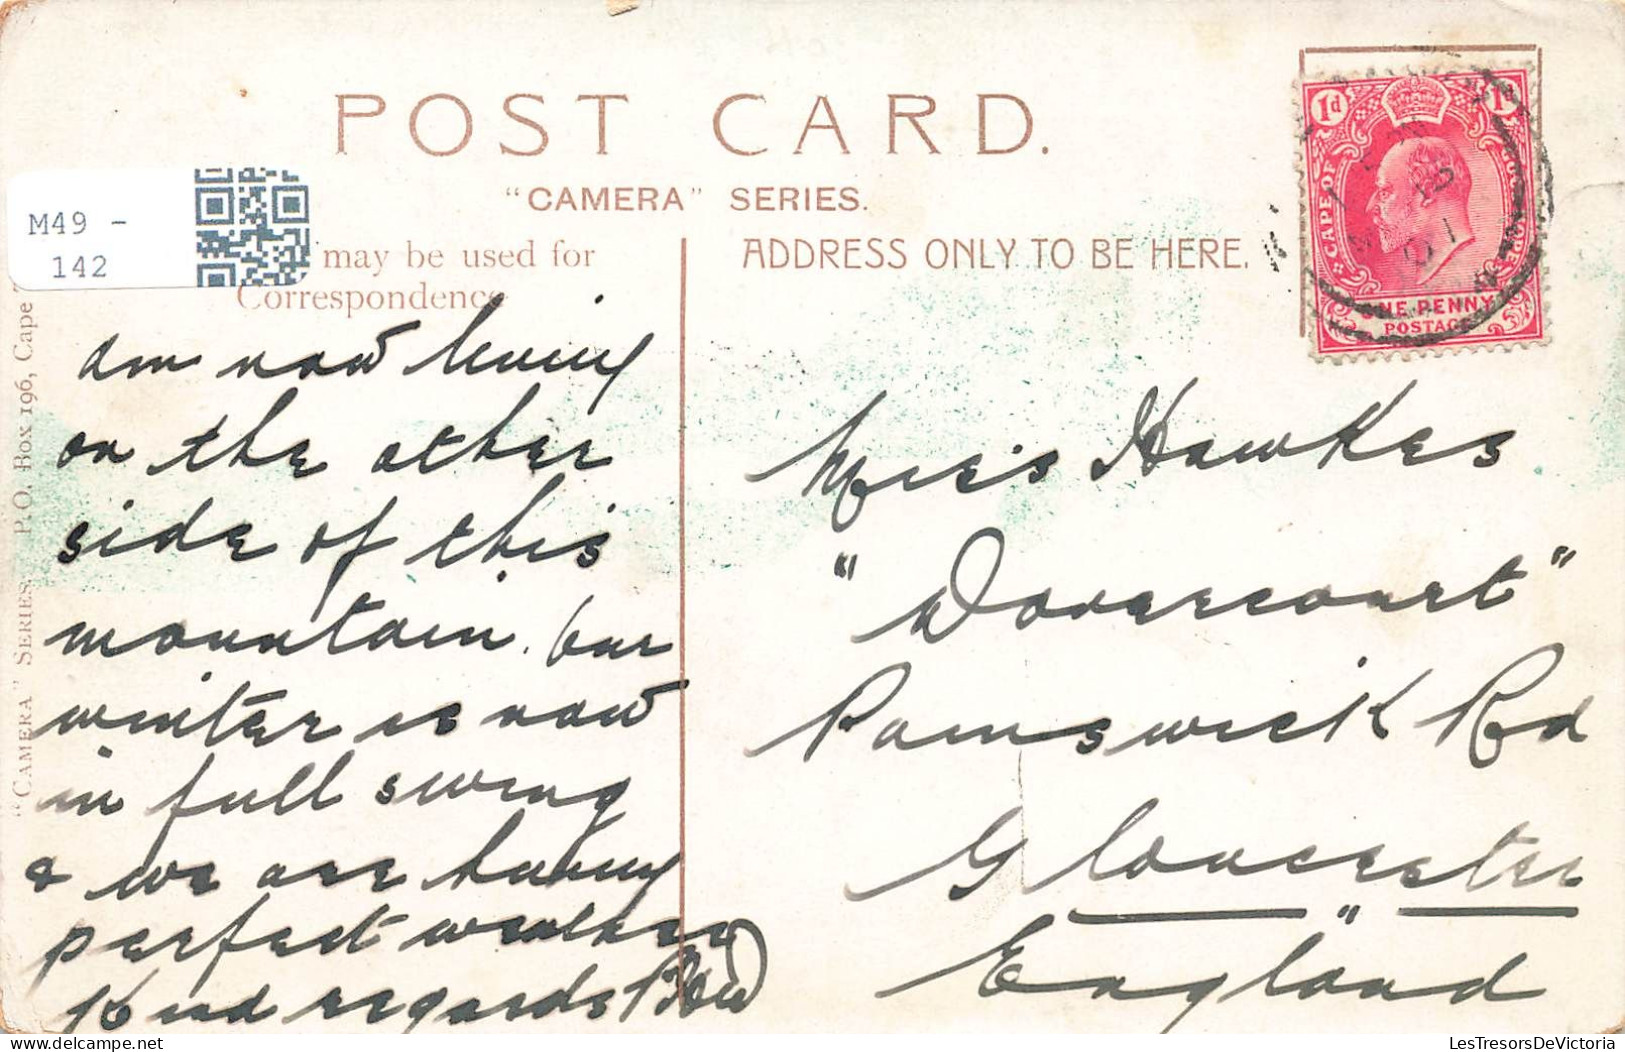 POST CARD.
"CAMERA" SERIES.
M49 -
142
may be used for
Correspondence
ADDRESS ONLY TO BE HERE.
"CAMERA" SERIES P.O. Box 196, Cape
1d
CAPE OF
ONE PENNY
POSTAGE
am now living
on the other
side of this
mountain. Our
winter is now
in full swing
& we are having
perfect weather
Kind regards
Miss Hawkes
"Dovercourt"
Painswick Rd
Gloucester
England
M49-142
LesTresorsDeVictoria